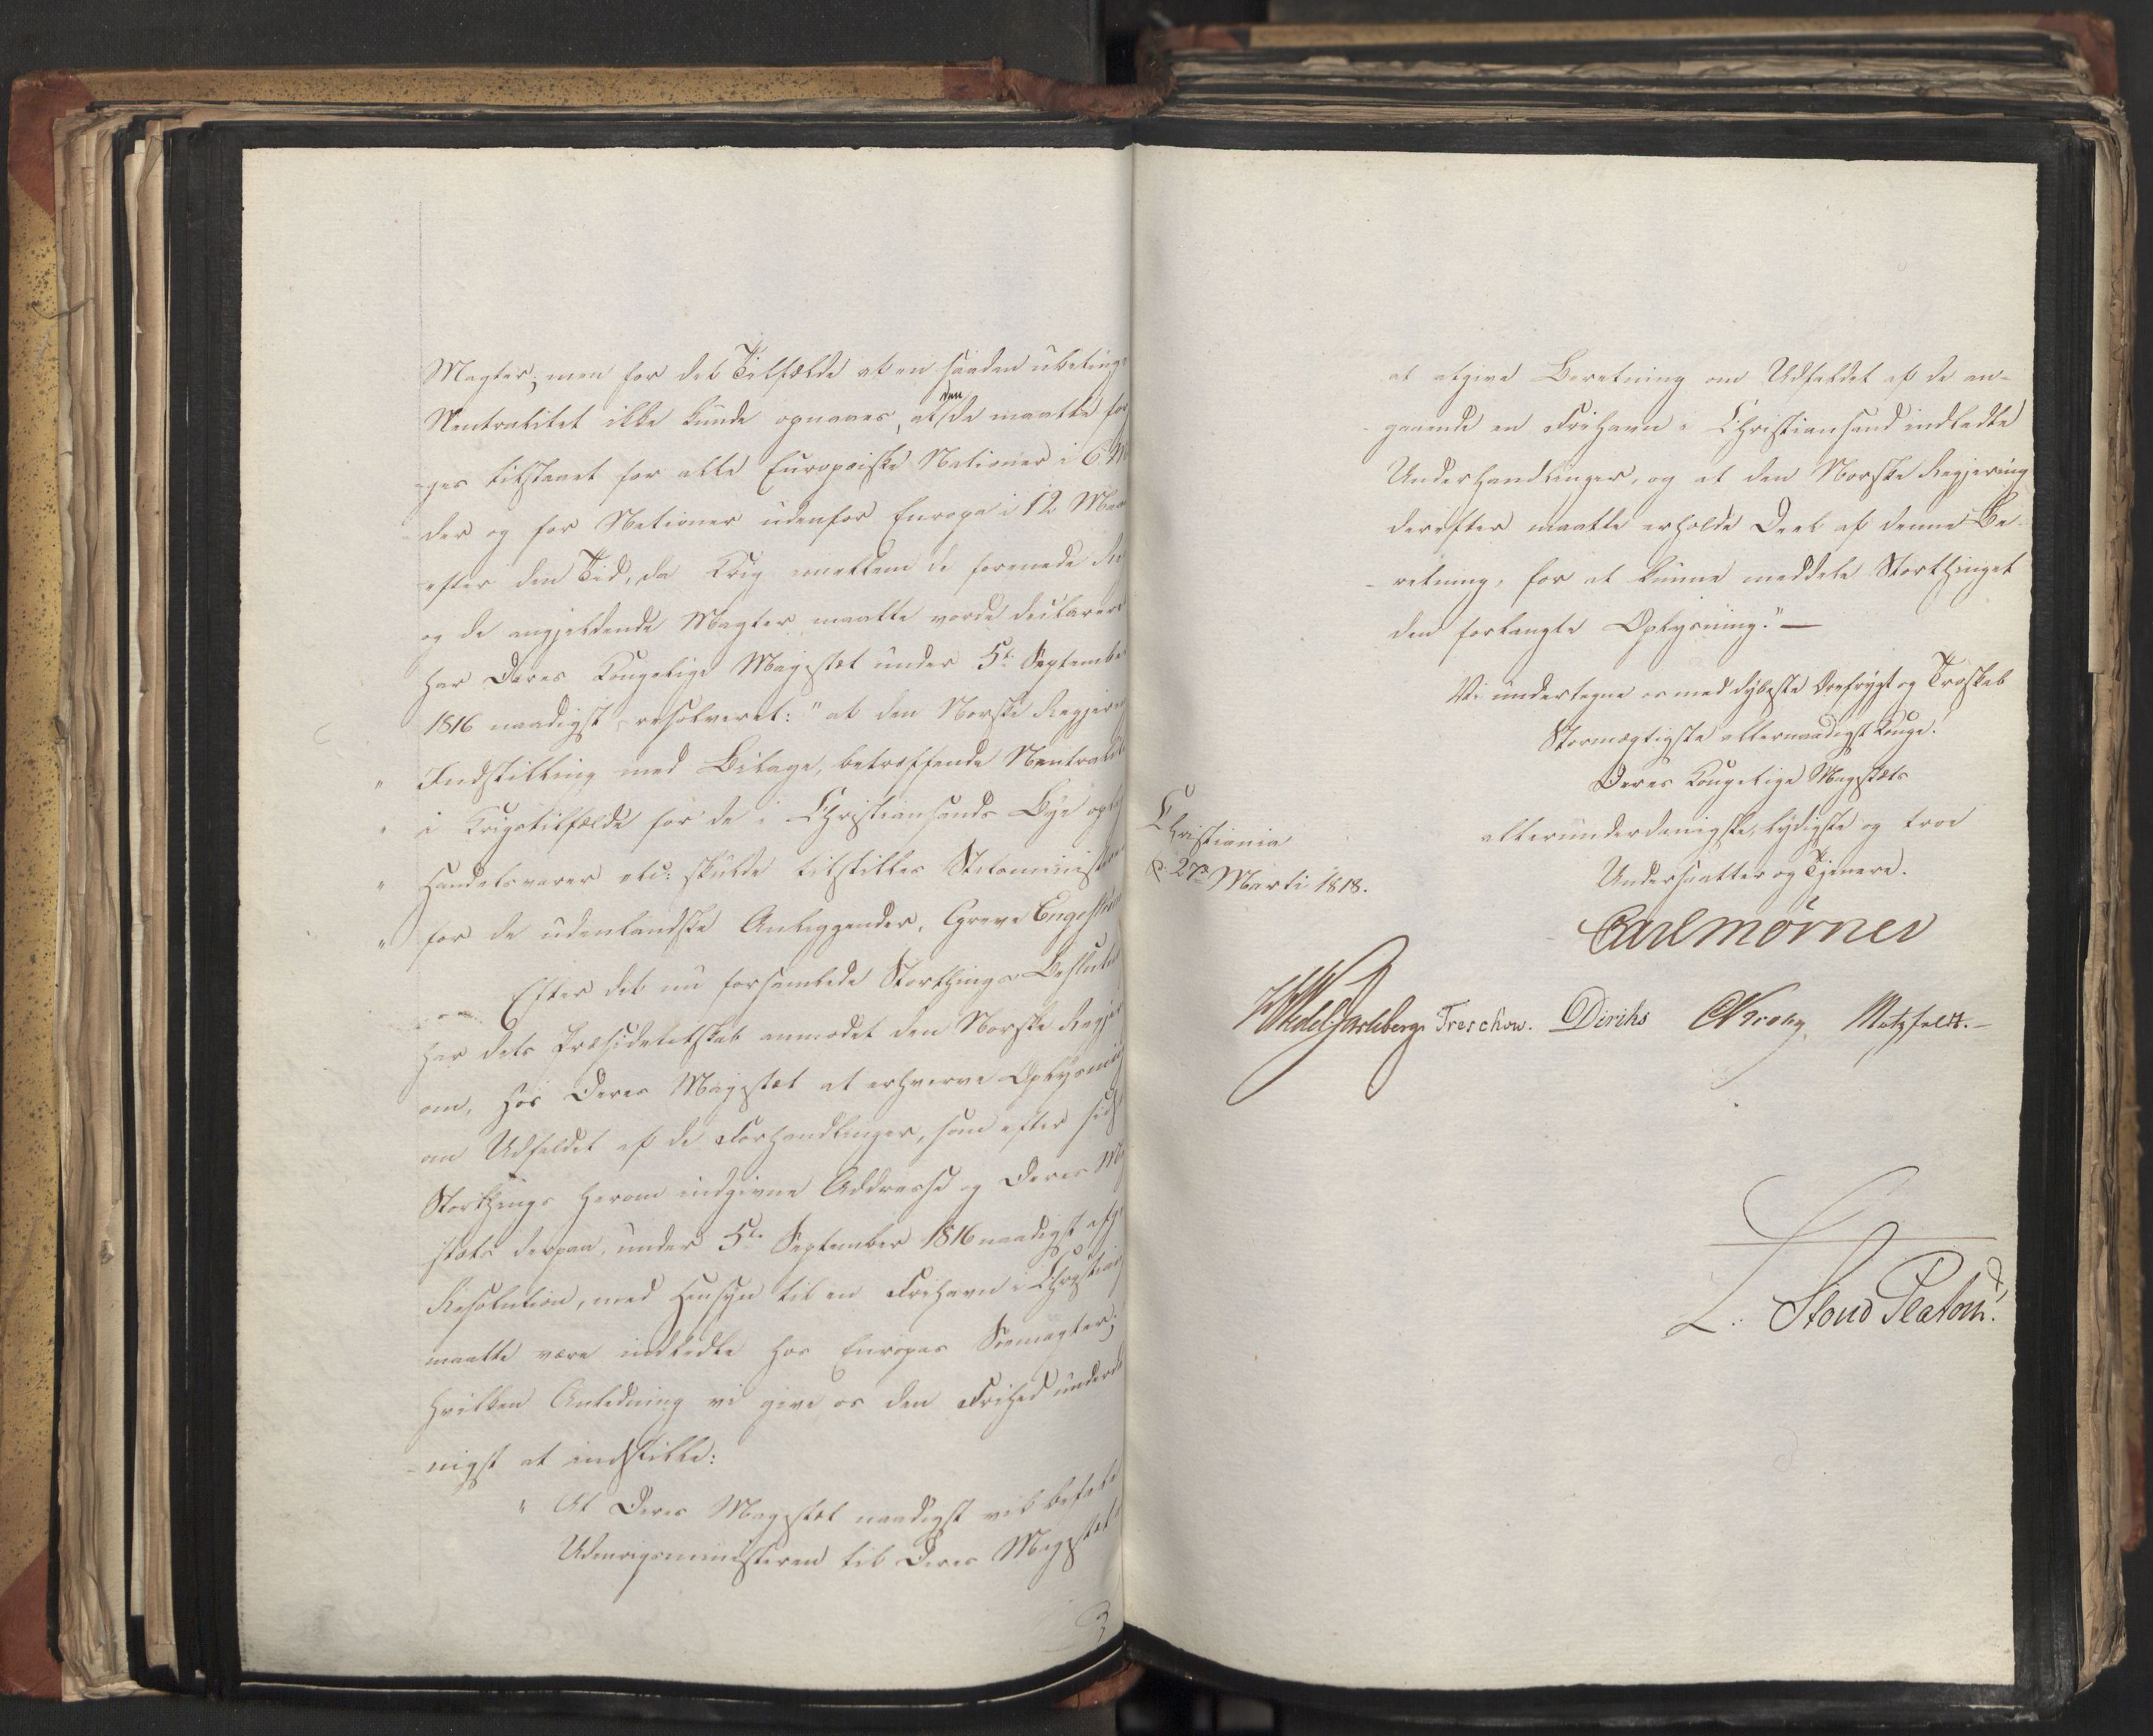 Magter; men for det Tilfælde at en saadan ubeting
Neutralitet ikke kunde opnaaes, at den
de maatte for
ges tilstaaet for alle Europæiske Nationer i 6 M
der og for Nationer udenfor Europa i 12 Maa
efter den Tid, da Krig imellem de forenede Ri
og de angjeldende Magter maatte vorde declarere
har Deres Kongelige Majestæt under 5te September
1816 naadigst resolveret: "at den Norske Regjering
" Indstilling med Bilage, betræffende Neutralite
" i Krigstilfælde for de i Christiansands Bye opla
" Handelsvarer etc: skulde tilstilles Statsminister
" for de udenlandske Anliggender, Greve Engestrøm
Efter det nu forsamlede Storthings Beslutn
har dets Præsidentskab anmodet den Norske Regjer
om, hos Deres Majestæt at erhverve Oplysning
om Udfaldet af de Forhandlinger, som efter sidst
Storthings herom indgivne Addresse og Deres Maj
stæts derpaa, under 5te September 1816 naadigst afg
Resolution, med Hensyn til en Frihavn i Christian
maatte være indledte hos Europas Søemagter;
hvilken Anledning vi give os den Frihed underd
nigst at indstille:
" At Deres Majestæt naadigst vil befale
Udenrigsministeren til Deres Majestæt
at afgive Beretning om Udfaldet af de an-
gaaende en Frihavn i Christiansand indledte
Underhandlinger, og at den Norske Regjering
derefter maatte erholde Deel af denne Be-
retning, for at kunne meddele Storthinget
den forlangte Oplysning." —
Vi undertegne os med dybeste Ærefrygt og Troskab
Stormægtigste allernaadigst Konge!
Deres Kongelige Majestæts
allerunderdanigste, lydigste og troe
Undersaatter og Tjenere.
Christiania
d. 27de Marti 1818.
Carl Mörner
HWedel Jarlsberg Treschow. Diriks CKrohg. Motzfeldt.
L. Stoud Platou